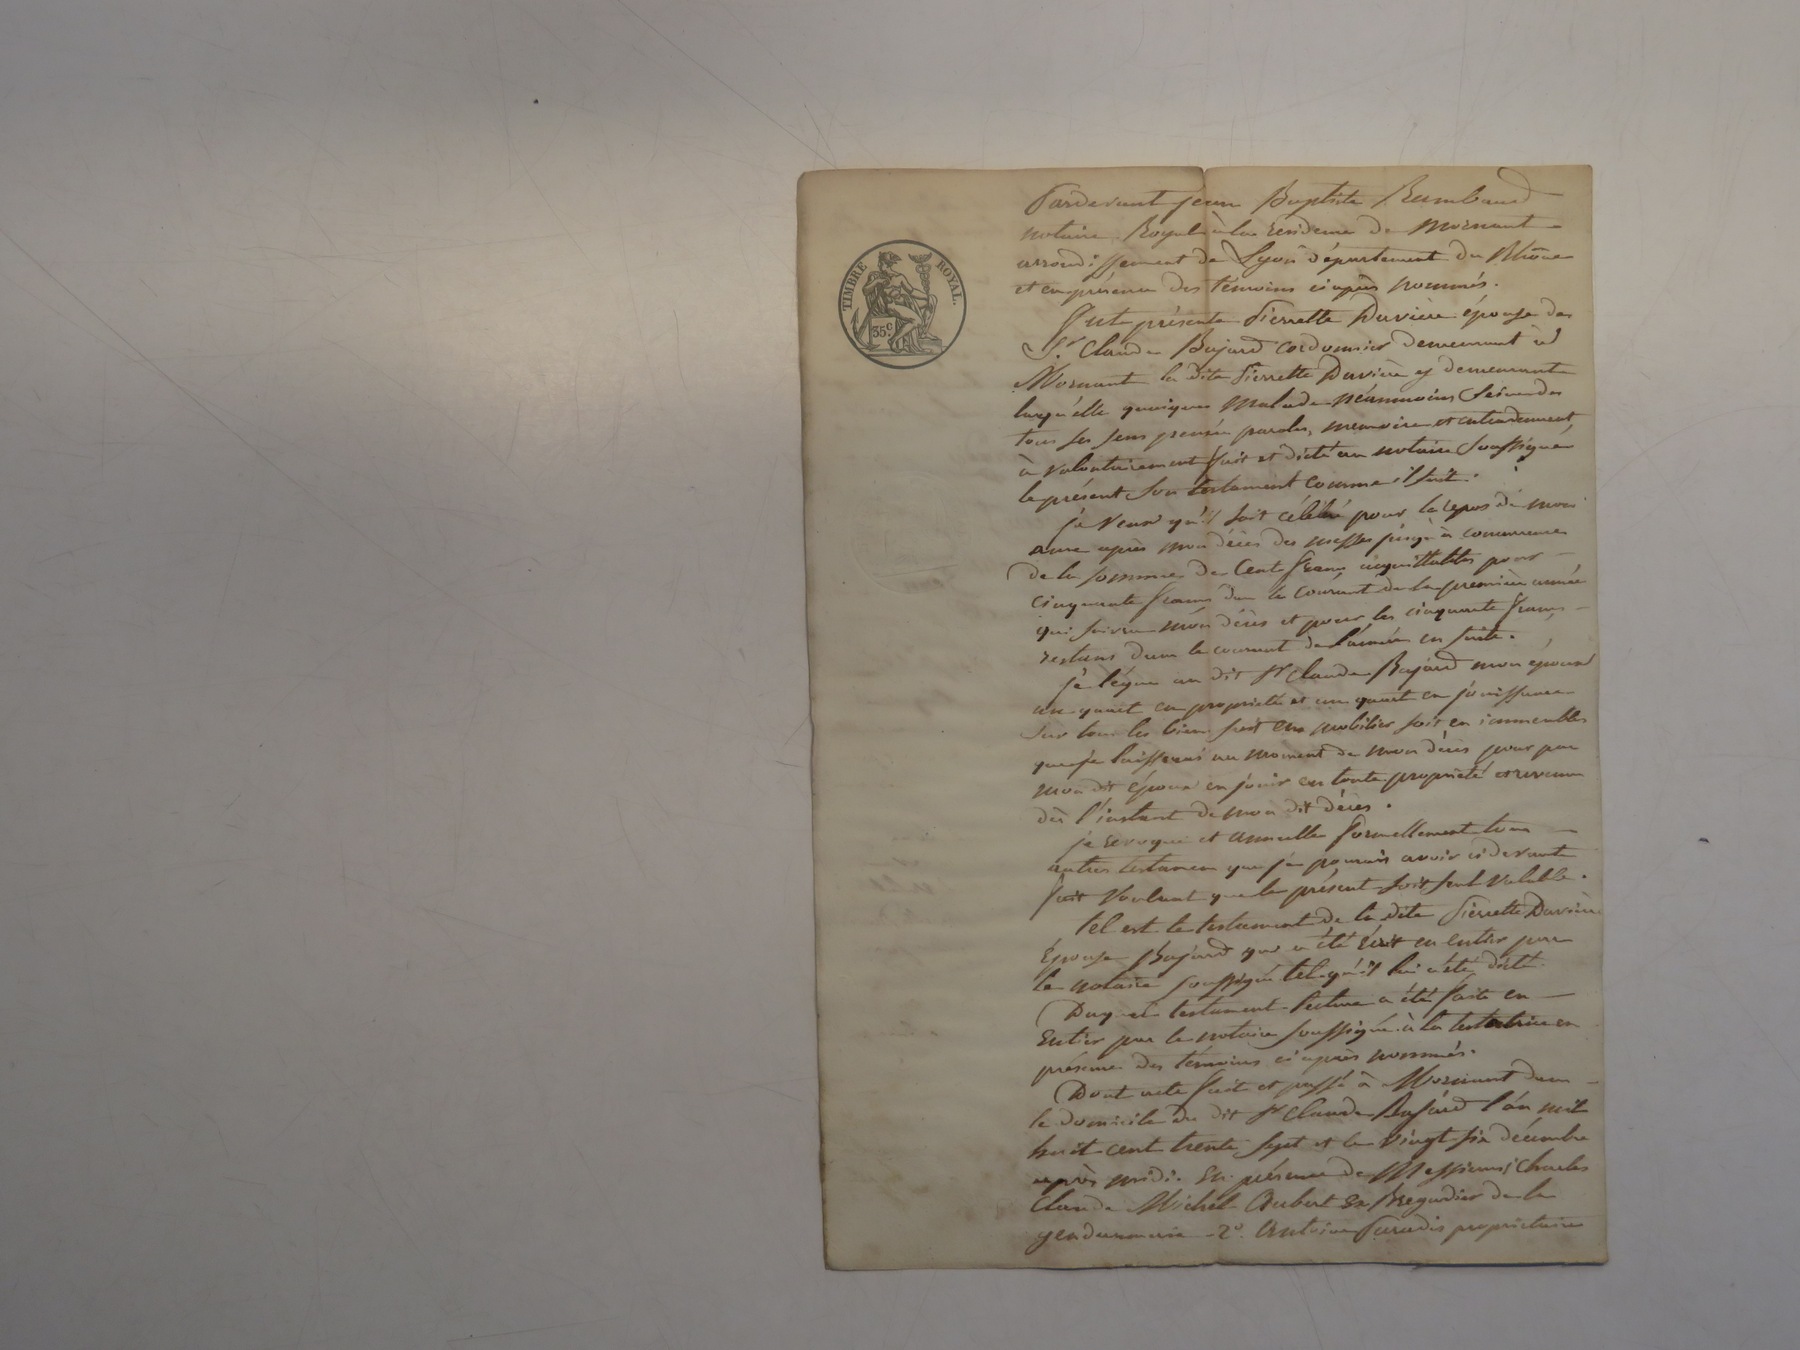 TIMBRE ROYAL.
35c
Pardevant Jean Baptiste Rambaud
notaire Royal à la residence de Mornant
arrondissement de Lyon département du Rhône
et en présence des témoins ciaprès nommés.
fut présente Pierrette Duvière épouse de
Sr Claude Bajard cordonnier demeurant à
Mornant la dite Pierrette Duvière y demeurant
laquelle quoique malade néanmoins
tous ses sens pensée parole, memoire et entendement
à volontairement fait et dicté au notaire soussigné
le présent son testament comme il suit.
je veux qu'il soit célébré pour le repos de mon
ame après mon décès des messes jusqu'à concurrence
de la somme de Cent francs acquittables pour
cinquante francs dans le courant de la première année
qui suivra mon décès et pour les cinquante francs
restans dans le courant de l'année en suite.
je lègue au dit Sr Claude Bajard mon époux
un quart en propriété et un quart en jouissance
sur tous les biens soit en mobilier soit en immeubles
que je laisserai au moment de mon décès pour par
mon dit époux en jouir en toute propriété et revenu
dès l'instant de mon dit décès.
je revoque et annulle formellement tous
autres testamens que je pourais avoir ci devant
fait voulant que le présent soit seul valable.
tel est le testament de la dite Pierrette Duvière
Épouse Bajard qui a été écrit en entier par
le notaire soussigné tel qu'il lui a été dicté.
Duquel testament lecture a été faite en
Entier par le notaire soussigné à la testatrice en
présence des témoins ci après nommés.
Dont acte fait et passé à Mornant dans
le domicile du dit Sr Claude Bajard l'an mil
huit cent trente sept et le vingt six décembre
après midi. En présence de Messieurs Charles
Claude Michel Aubert Ex Bregadier de la
gendarmerie 2° Antoine Paradis propriétaire